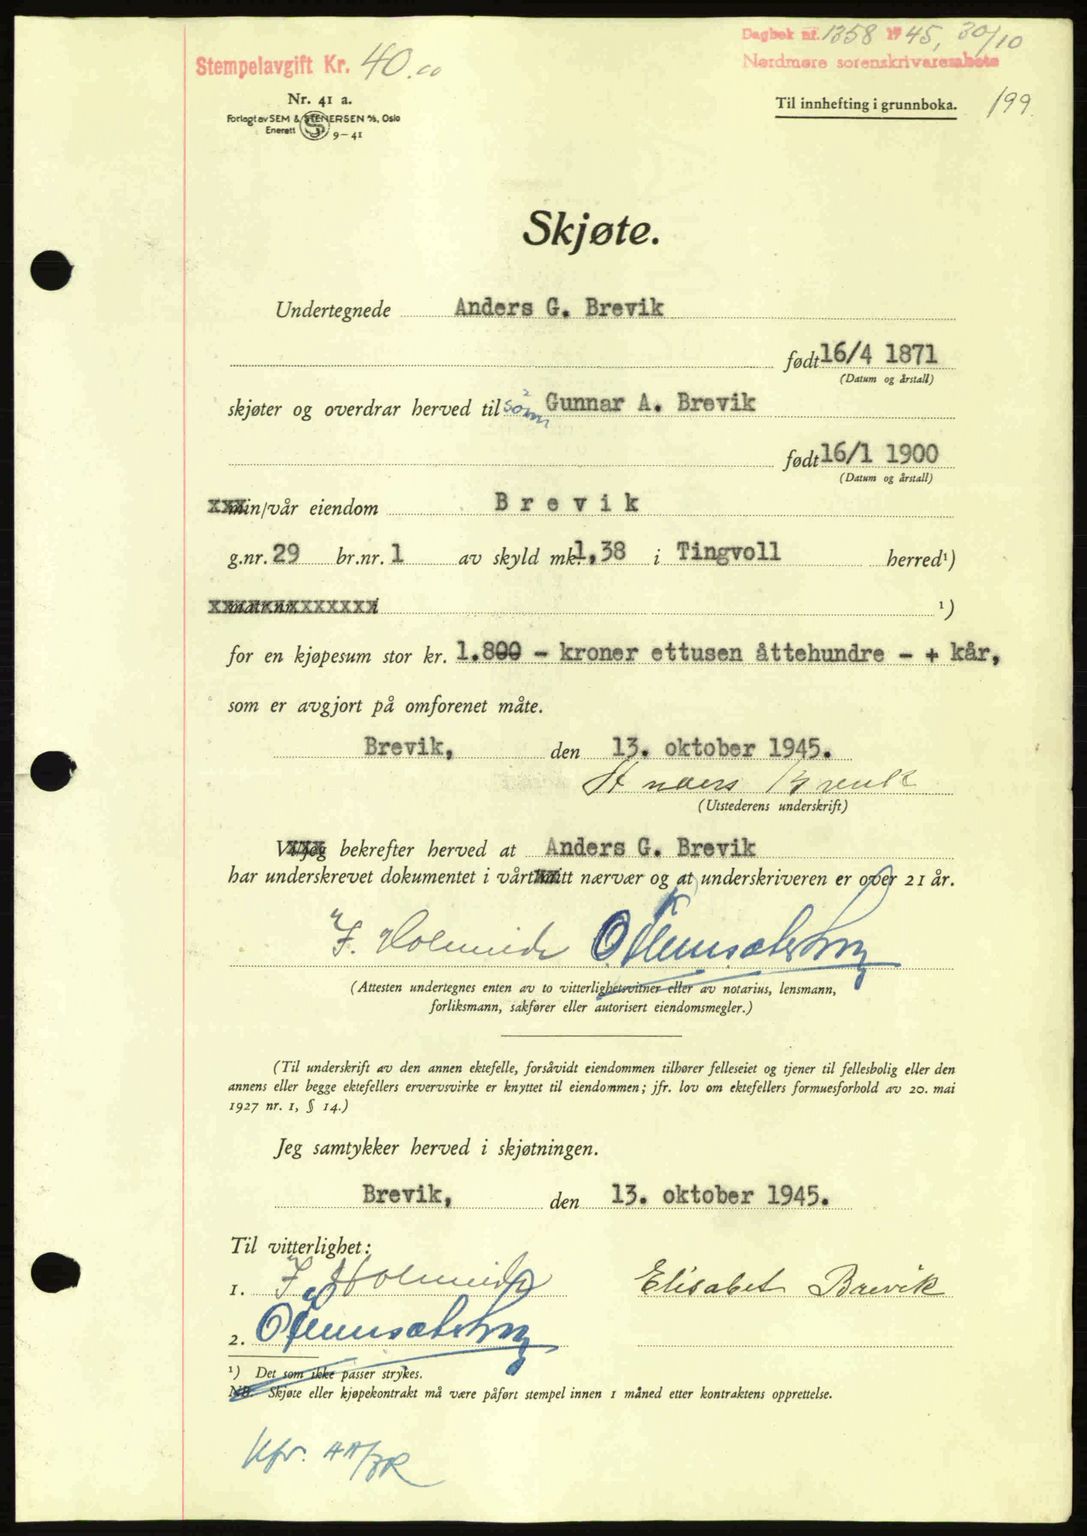 Stempelavgift Kr. 40.00
Dagbok nr. 1358 1945, 30/10
Nordmøre sorenskriverembete
Nr. 41 a.
Forlagt av SEM & STENERSEN A/S, Oslo
Enerett 9-41
Til innhefting i grunnboka. 199.
Skjøte.
Undertegnede Anders G. Brevik
født 16/4 1871
(Datum og årstall)
skjøter og overdrar herved til sønn Gunnar A. Brevik
født 16/1 1900
(Datum og årstall)
xxxmin/vår eiendom Brevik
g.nr. 29 br.nr. 1 av skyld mk. 1,38 i Tingvoll herred¹)
xxxxxxxxxxxxx ¹)
for en kjøpesum stor kr. 1.800 - kroner ettusen åttehundre - + kår,
som er avgjort på omforenet måte.
Brevik, den 13. oktober 1945.
Anders Brevik
(Utstederens underskrift)
Vi/jeg bekrefter herved at Anders G. Brevik
har underskrevet dokumentet i vårt/mitt nærvær og at underskriveren er over 21 år.
(Attesten undertegnes enten av to vitterlighetsvitner eller av notarius, lensmann,
forliksmann, sakfører eller autorisert eiendomsmegler.)
(Til underskrift av den annen ektefelle, forsåvidt eiendommen tilhører felleseiet og tjener til fellesbolig eller den
annens eller begge ektefellers ervervsvirke er knyttet til eiendommen; jfr. lov om ektefellers formuesforhold av 20. mai
1927 nr. 1, § 14.)
Jeg samtykker herved i skjøtningen.
Brevik, den 13. oktober 1945.
Til vitterlighet:
1. Elisabet Brevik
2.
¹) Det som ikke passer strykes.
NB. Skjøte eller kjøpekontrakt må være påført stempel innen 1 måned etter kontraktens opprettelse.
Kfr.